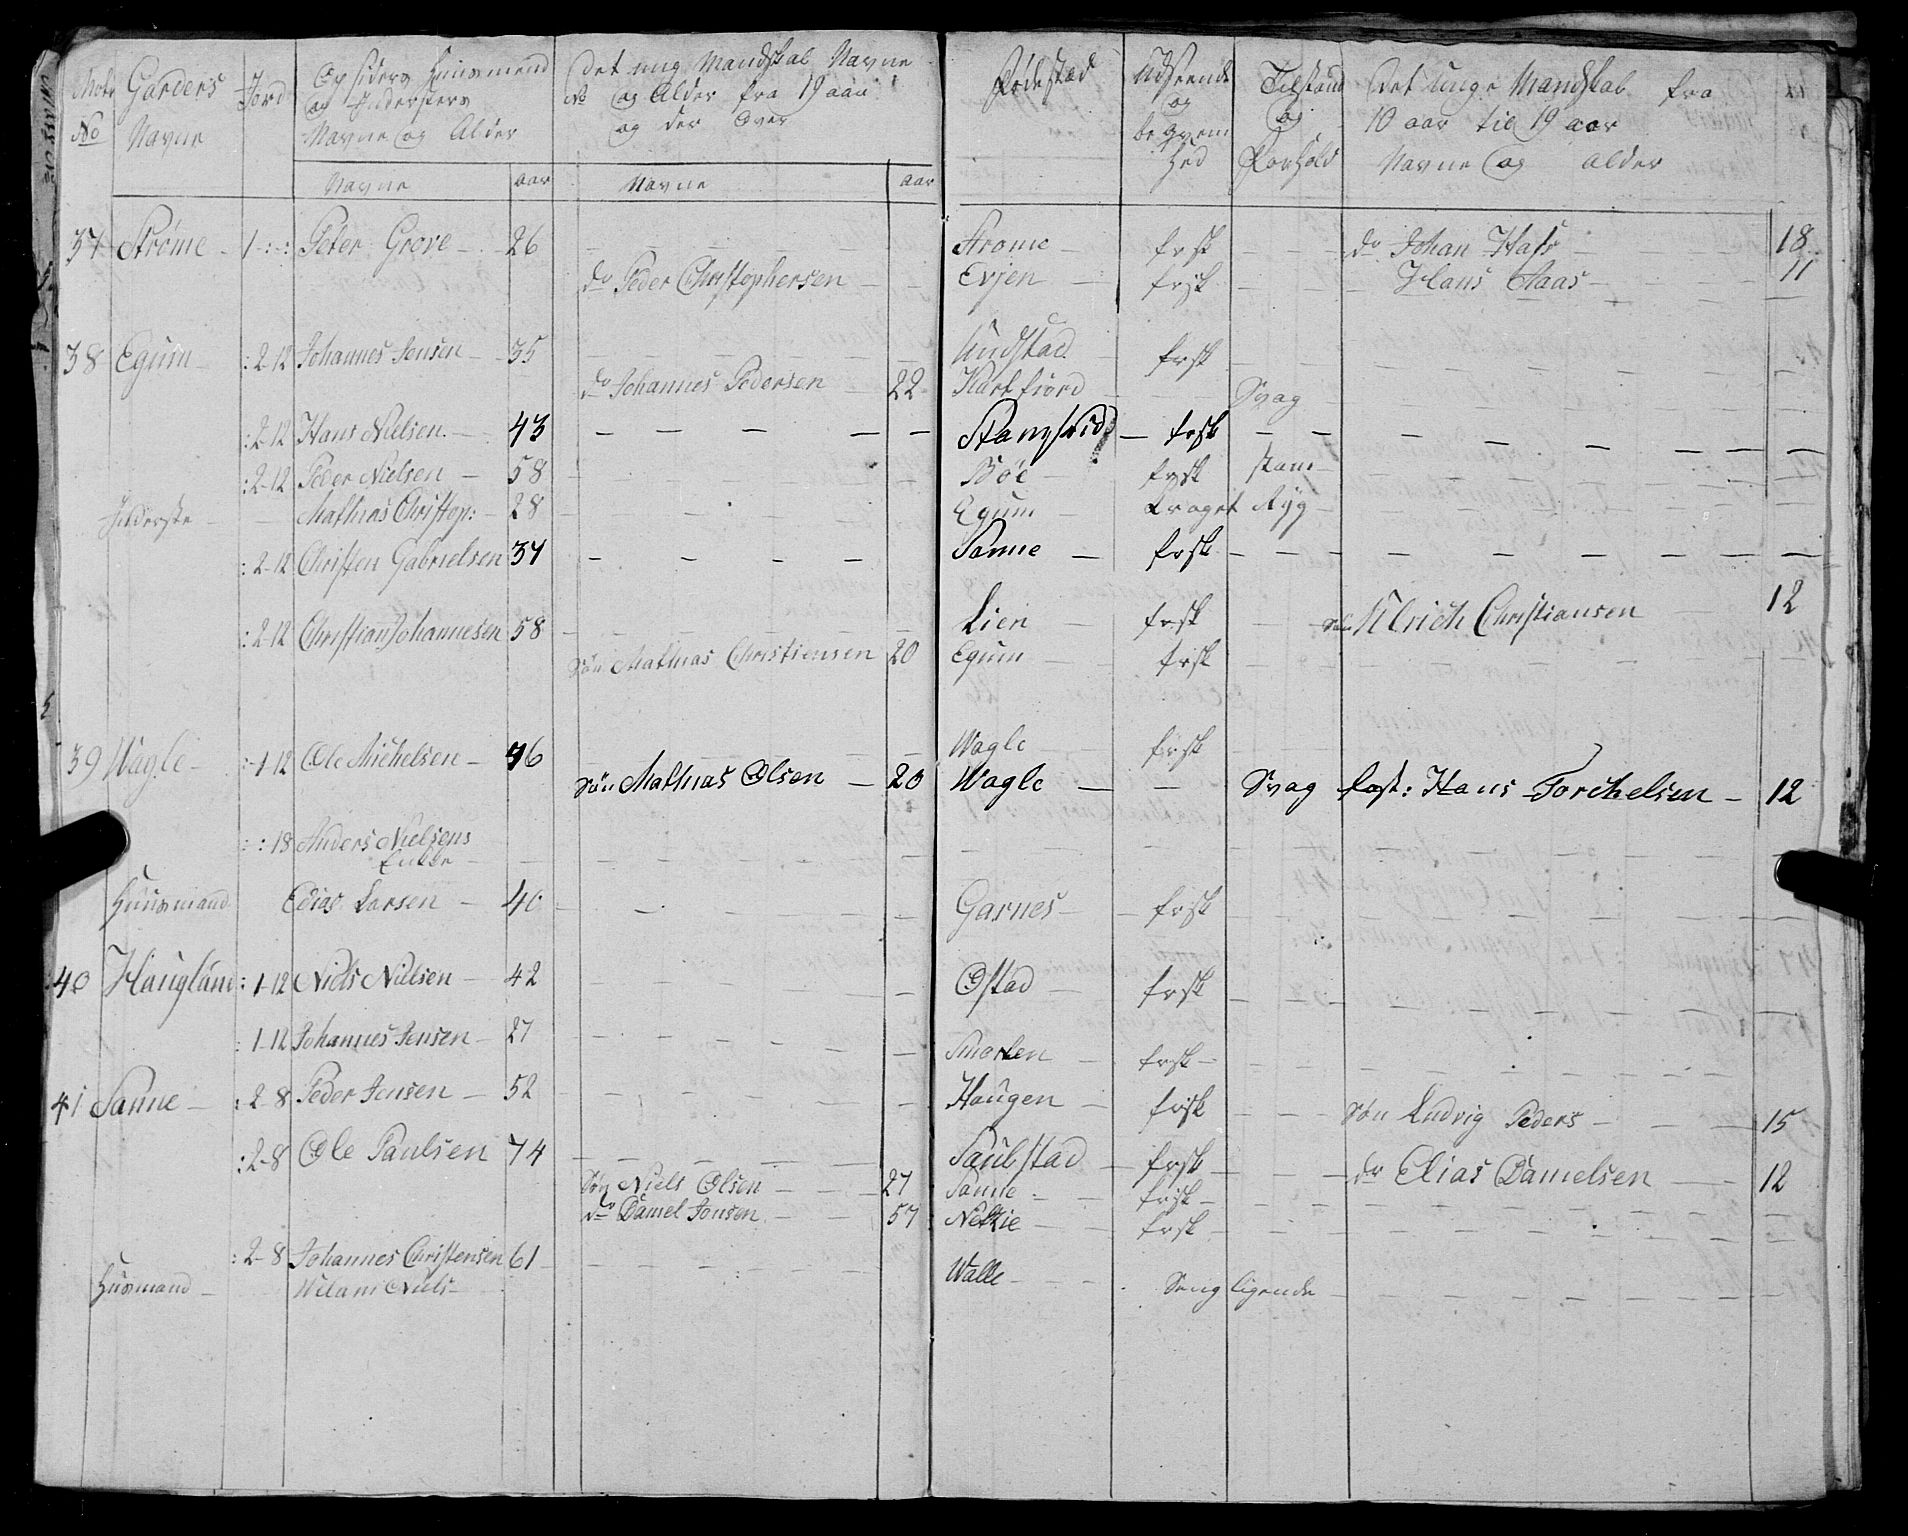 No Gårders Navne Jord Opsiders Huusmend og Inderster Navne og Alder Det ung Mandskab Navne og Alder fra 19 aar og der over Fødestæd Udseende og beqvemhed Tilstand og Forhold Det unge Mandskab fra 10 aar til 19 aar Navne og alder
Navne aar Navne aar
37 Strøme 1-:-: Peter Grove 26 Strome frsk do Johan Hass 18
do Peder Christophersen Evjen frsk Hans Haas 11
38 Egum :2-12 Johannes Jensen 35 Undstad frsk
do Johannes Pedersen 22 Kartfiord Svag
:2-12 Hans Nielsen 43 frsk
:2-12 Peder Nielsen 58 Böe frsk stam
Inderste Mathias Christop: 28 Egum Kroget Ryg
:2-12 Christen Gabrielsen 37 Sanne frsk
:2-12 Christian Johannesen 58 Lien frsk Søn Ulrich Christiansen 12
Søn Mathias Christiensen 20 Egum frsk
39 Wagle :-1-12 Ole Michelsen 46 Wagle frsk
Søn Mathias Olsen 20 Wagle Svag fost: Hans Torchelsen 12
: :18 Anders Nielsens
Enke
Huusmand Edias Larsen 40 Garnes frsk
40 Haugland :1-12 Niels Nielsen 42 Ostad frsk
:1-12 Johannes Jensen 27 Smorten frsk
41 Sanne :2-8 Peder Jensen 52 Haugen frsk Søn Ludvig Peders 15
:2-8 Ole Paulsen 74 Saulstad frsk do Elias Danielsen 12
Søn Niels Olsen 27 Sanne frisk
do Daniel Jonsen 57 frsk
:2-8 Johannes Christensen 61 Walle
Huusmand Welam Niels Seng ligende